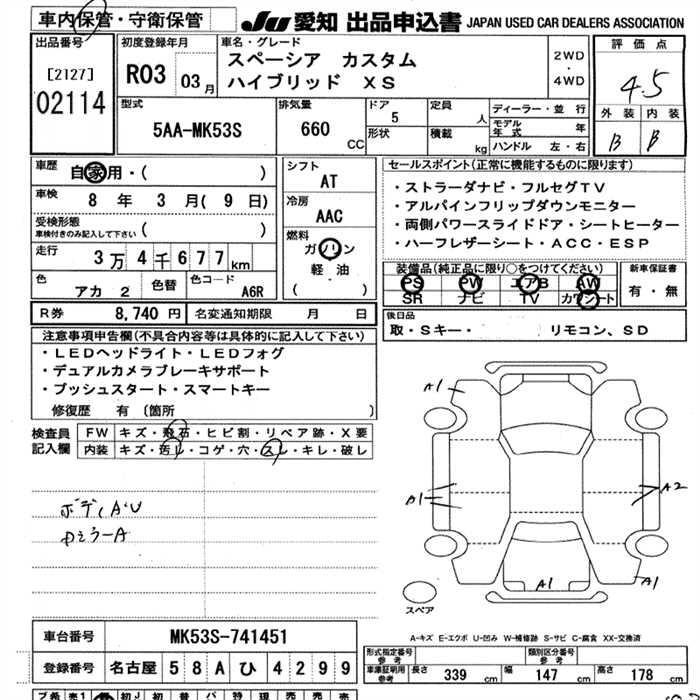 車内保管・守衛保管
JU 愛知 出品申込書 JAPAN USED CAR DEALERS ASSOCIATION
出品番号
[2127]
02114
初度登録年月
R03 年 03 月
車名・グレード
スペーシア カスタム
ハイブリッド XS
2WD
・
4WD
評価点
4.5
外装 内装
B B
型式
5AA-MK53S
排気量
660 CC
ドア
5
形状
定員 人
積載 kg
ディーラー・並行
モデル年式 年
ハンドル 左・右
車歴
自家用・( )
車検
8 年 3 月 ( 9 日)
受検形態
車検付きのみ記入して下さい ( )
走行
3万4千677km
色
アカ 2
色替
色コード
A6R
シフト
AT
冷房
AAC
燃料
ガソリン
軽油
( )
セールスポイント(正常に機能するものに限ります)
・ストラーダナビ・フルセグTV
・アルパインフリップダウンモニター
・両側パワースライドドア・シートヒーター
・ハーフレザーシート・ACC・ESP
装備品(純正品に限り○をつけてください)
PS PW エアB AW
SR ナビ TV カワシート
新車保証書
有・無
R券 8,740 円
名変通知期限 月 日
後日品
取・Sキー・ リモコン、SD
注意事項申告欄(不具合内容等は具体的に記入して下さい)
・LEDヘッドライト・LEDフォグ
・デュアルカメラブレーキサポート
・プッシュスタート・スマートキー
修復歴 有 (箇所 )
検査員
記入欄
FW キズ・飛石・ヒビ割・リペア跡・X要
内装 キズ・汚レ・コゲ・穴・スレ・キレ・破レ
ボディA・U
A1
A1
A2
A1
A1
スペア
A-キズ E-エクボ U-凹み W-補修跡 S-サビ C-腐食 XX-交換済
車台番号
MK53S-741451
登録番号
名古屋 58A ひ 4299
形式指定番号
参考
類別区分番号
参考
車庫証明用
参考
長さ 339 cm
幅 147 cm
高さ 178 cm